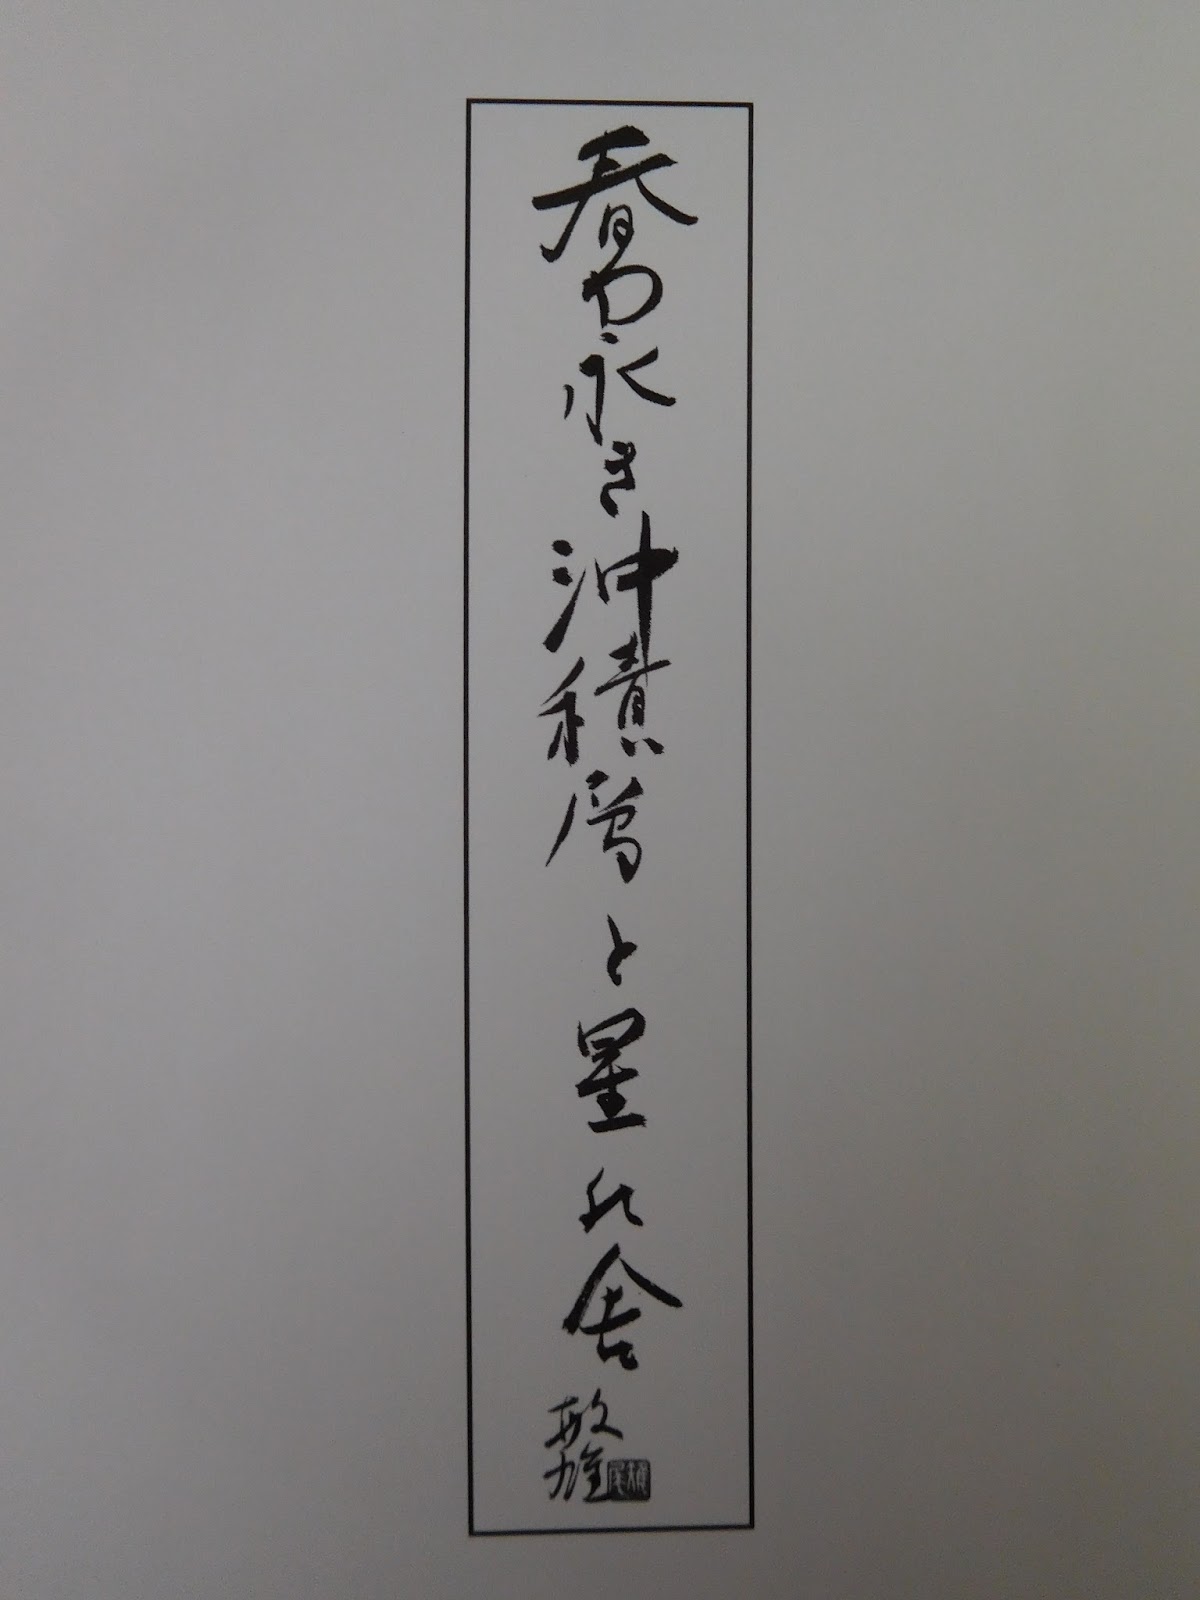 春や永き沖積層と星の舎
敏雄